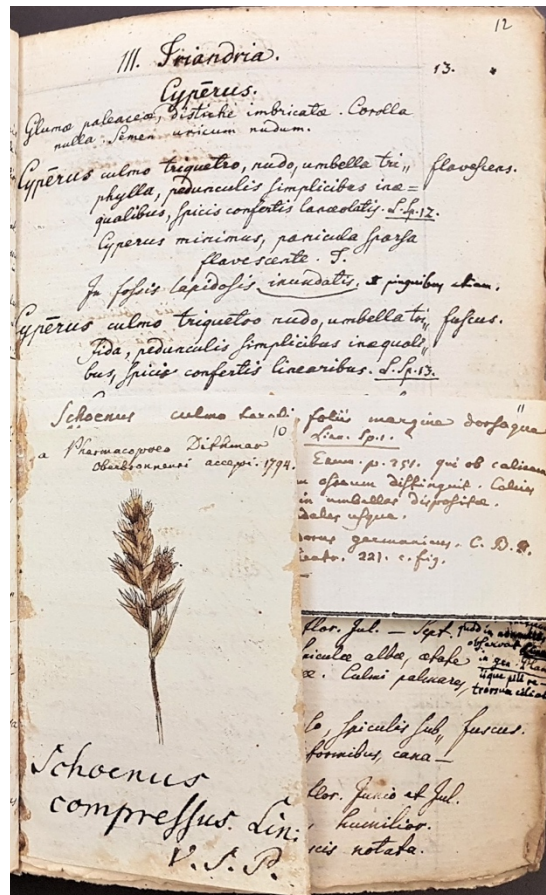 12
III. Triandria.
13.
Cypērus.
Glumæ paleaceæ, distiche imbricatæ. Corolla
nulla. Semen unicum nudum.
Cypērus culmo triquetro, nudo, umbella tri„ flavescens.
phylla, pedunculis simplicibus inæ=
qualibus, spicis confertis lanceolatis. L. Sp. 12.
Cyperus minimus, panicula sparsa
flavescente. T.
In fossis lapidosis inundatis, et pinguibus etiam.
Cypērus culmo triquetro nudo, umbella tri„ fuscus.
fida, pedunculis simplicibus inæquali„
bus, spicis confertis linearibus. L. Sp. 13.
Schoenus culmo tereti foliis margine dorsoque
Linn. Sp. 1.
10
a Pharmacopoeo Dithmar
accepi. 1794.
Enum. p. 251. qui ob calicem
distinguit. Calices
in umbellas dispositæ.
usque.
germanicus. C. B. P.
Theatr. 221. c. fig.
flor. Jul. — Sept.
albæ, ætate
Culmi palmares,
spiculis sub„ fuscus.
formibus, cana—
flor. Junio et Jul.
humilior.
notata.
Schoenus
compressus. Lin:
V. S. P.